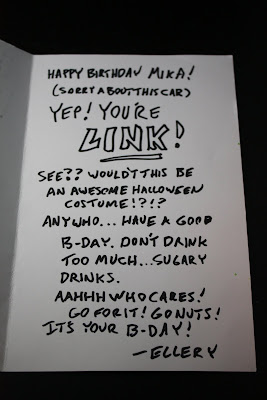 HAPPY BIRTHDAY MIKA!
(SORRY ABOUT THIS CAR)
YEP! YOU'RE
LINK!
SEE?? WOULD'T THIS BE
AN AWESOME HALLOWEEN
COSTUME!?!?
ANYWHO... HAVE A GOOD
B-DAY. DON'T DRINK
TOO MUCH... SUGARY
DRINKS.
AAHHH WHO CARES!
GO FOR IT! GO NUTS!
IT'S YOUR B-DAY!
—ELLERY